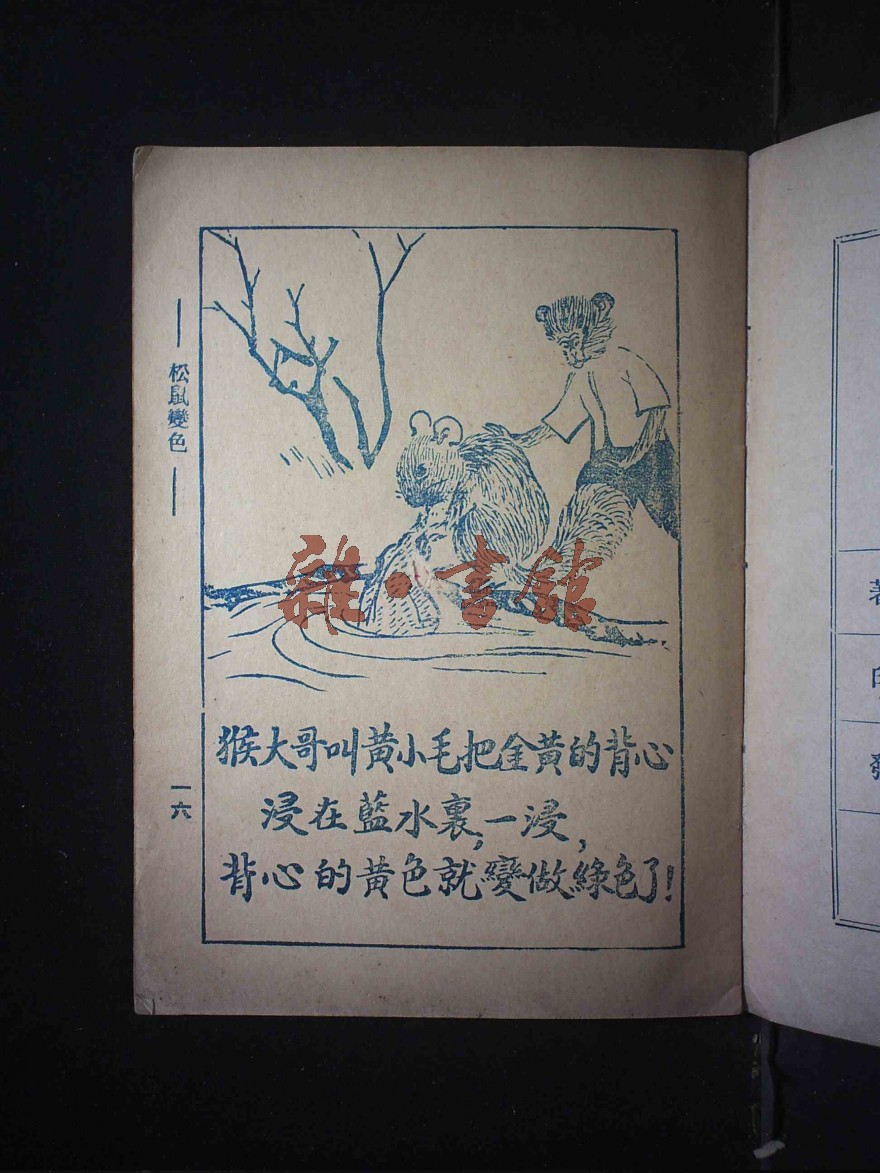 松鼠變色
猴大哥叫黃小毛把金黃的背心
浸在藍水裏,一浸,
背心的黃色就變做綠色了!
一六
雜·書館
著
印
發